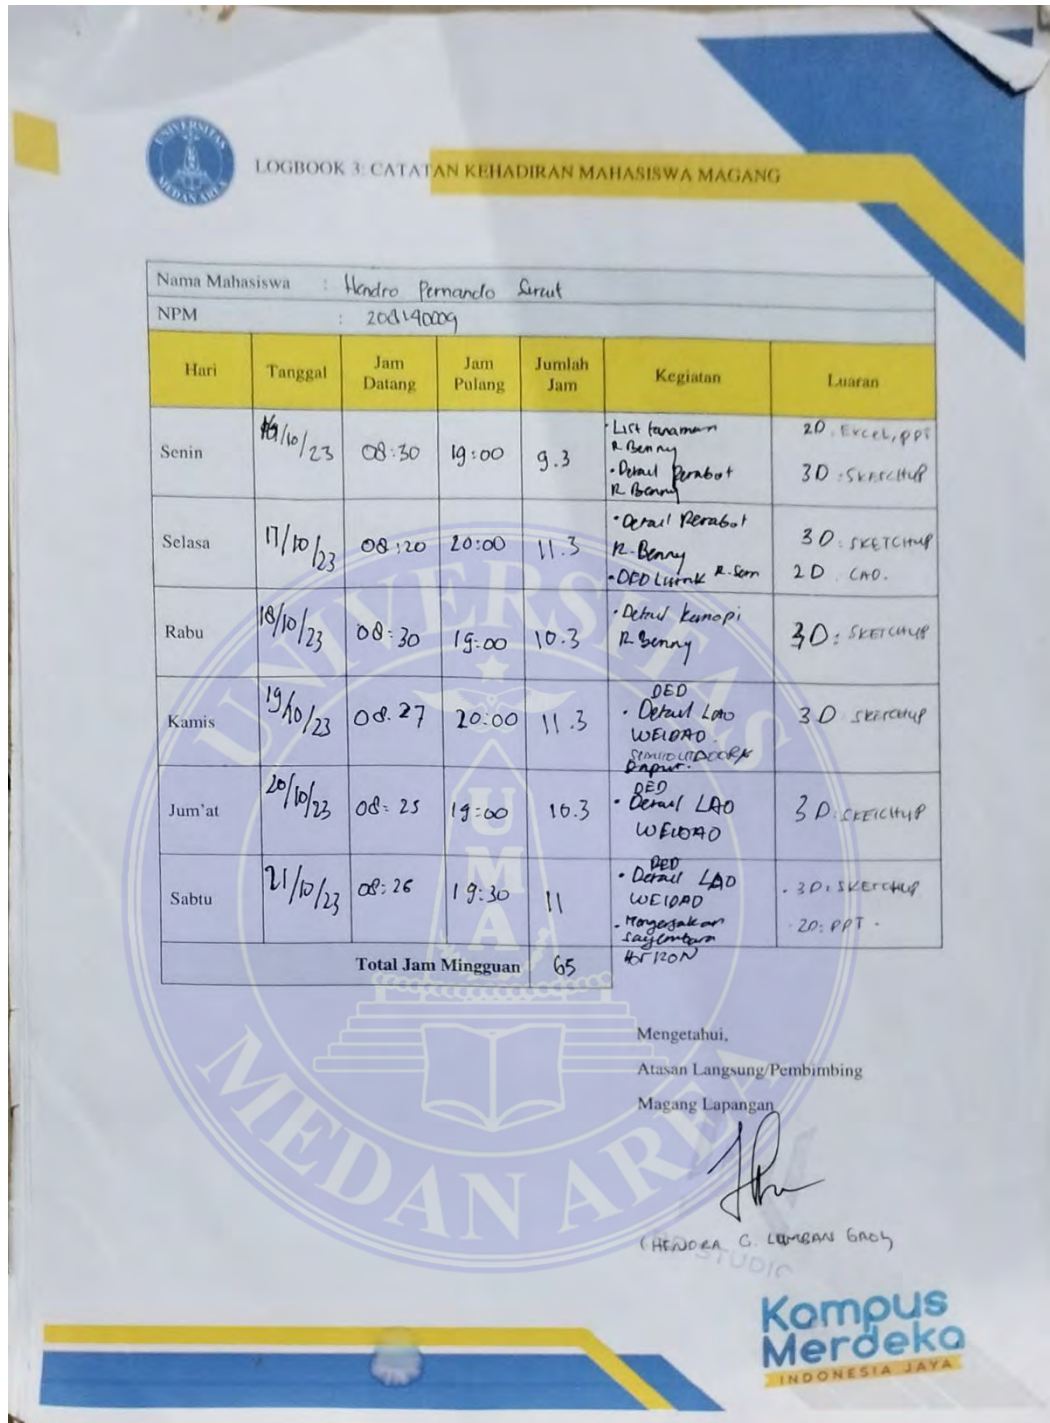 UNIVERSITAS MEDAN AREA
LOGBOOK 3: CATATAN KEHADIRAN MAHASISWA MAGANG
Nama Mahasiswa : Hendro Pernando
NPM : 208140009
Hari Tanggal Jam Datang Jam Pulang Jumlah Jam Kegiatan Luaran
Senin /10/23 08:30 19:00 9.3
• List tanaman
R Benny
• Detail Perabot
R Benny
2D : Excel, PPT
3D : SKETCHUP
Selasa 17/10/23 08:20 20:00 11.3
• Detail Perabot
R. Benny
• DED Listrik R. Sem
3D : SKETCHUP
2D CAD.
Rabu 18/10/23 08:30 19:00 10.3
• Detail Kanopi
R Benny
3D : SKETCHUP
Kamis 19/10/23 08.27 20:00 11.3
DED
• Detail LAO
WEIDAO
SEMIOUTDOOR
Dapur.
3D SKETCHUP
Jum'at 20/10/23 08:25 19:00 10.3
DED
• Detail LAO
WEIDAO
3D : SKETCHUP
Sabtu 21/10/23 08:26 19:30 11
DED
• Detail LAO
WEIDAO
• Mengerjakan
Sayembara
HORIZON
• 3D : SKETCHUP
• 2D : PPT •
Total Jam Mingguan 65
UNIVERSITAS MEDAN AREA
UMA
Mengetahui,
Atasan Langsung/Pembimbing
Magang Lapangan
(HENDRA C. LUMBAN GAOL)
STUDIO
Kampus
Merdeka
INDONESIA JAYA